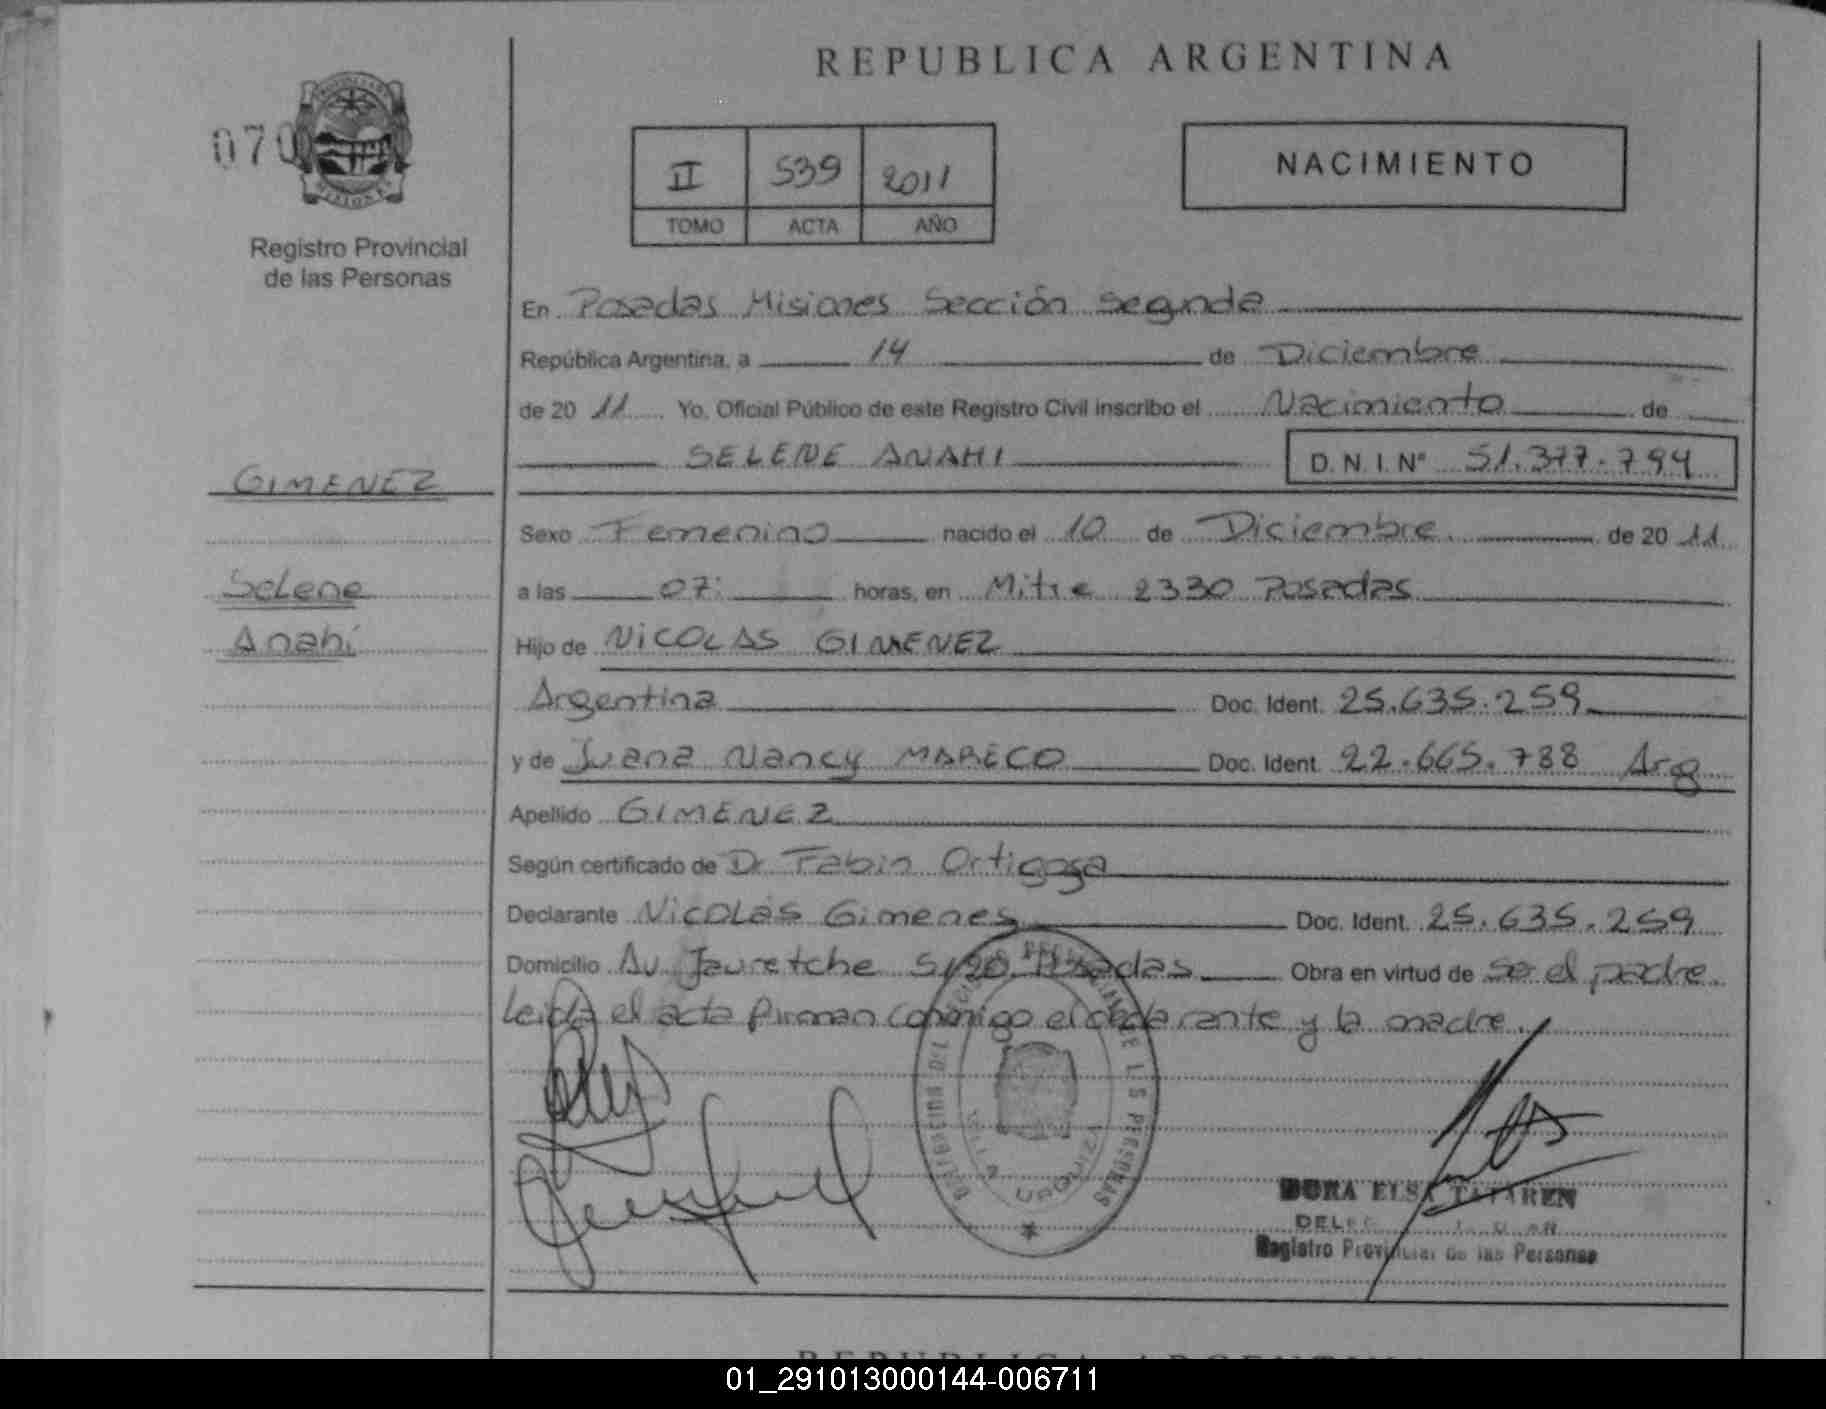 REPUBLICA ARGENTINA
070
Registro Provincial
de las Personas
II 539 2011
TOMO ACTA AÑO
NACIMIENTO
En Posadas Misiones Sección Segunda
República Argentina, a 14 de Diciembre
de 20 11 Yo, Oficial Público de este Registro Civil inscribo el Nacimiento de
SELENE ANAHI D.N.I. Nº 51.377.794
GIMENEZ
Selene
Anahi
Sexo Femenino nacido el 10 de Diciembre de 20 11
a las 07: horas, en Mitre 2330 Posadas
Hijo de NICOLAS GIMENEZ
Argentina Doc. Ident. 25.635.259
y de Juana Nancy MARECO Doc. Ident. 22.665.788 Arg
Apellido GIMENEZ
Según certificado de Dr Fabin Ortigoza
Declarante Nicolas Gimenes Doc. Ident. 25.635.259
Domicilio Av Jauretche Posadas Obra en virtud de se el padre
Leida el acta firman conmigo el declarante y la madre.
DELEGACION DEL REGISTRO PROVINCIAL DE LAS PERSONAS
VILLA URQUIZA
DORA ELSA
Registro Provincial de las Personas
REPUBLICA ARGENTINA
01_291013000144-006711